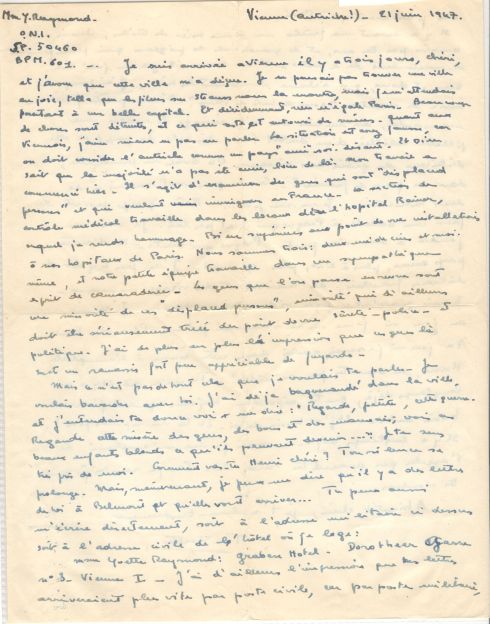 Mme Y. Raymond.
Vienne (Autriche!) - 21 juin 1947.
O.N.I.
SP. 50460
BPM. 601. -. Je suis arrivée à Vienne il y a trois jours, chéri,
et j'avoue que cette ville m'a déçue. Je ne pensais pas trouver une ville
en joie, telle que les films sur Strauss nous la montre, mais je m'attendais
pourtant à une belle capitale. Et décidemment, rien n'égale Paris. Beaucoup
de choses sont détruites, et ce qui reste est entouré de ruines. quant aux
Viennois, j'aime mieux ne pas en parler. La situation est assez fausse car
on doit considérer l'Autriche comme un pays "ami" soi-disant. Et Dieu
sait que la majorité n'a pas été amie, loin de là. Mon travail a
commencé hier. Il s'agit d'examiner des gens qui sont "displaced
persons" et qui veulent venir immigrer en France. La section du
contrôle médical travaille dans les locaux de l'hôpital Rainer,
auquel je rends hommage. Bien supérieur au point de vue installations
à nos hôpitaux de Paris. Nous sommes trois: deux médecins et moi-
même, et notre petite équipe travaille dans un sympathique
esprit de camaraderie. Les gens que l'on passe en revue sont
une minorité de ces "displaced persons", minorité qui d'ailleurs
doit être sérieusement triée du point de vue santé - police - et
politique. J'ai de plus en plus l'impression que ces gens là
sont un ramassis fort peu appréciable de fuyards.
Mais ce n'est pas du tout cela que je voulais te parler. Je
voulais bavarder avec toi. J'ai déjà vagabondé dans la ville,
et j'entendais ta douce voix me dire: "Regarde, petite, cette guerre.
Regarde cette misère des gens, les bons et les mauvais; vois ces
beaux enfants blonds et ce qu'ils peuvent devenir...." Je te sens
très près de moi. Comment vas-tu Henri chéri? Ton silence se
prolonge. Mais, maintenant, je peux me dire qu'il y a des lettres
de toi à Belmont et qu'elles vont arriver... Tu peux aussi
m'écrire directement, soit à l'adresse militaire ci dessus
soit à l'adresse civile de l'hôtel où je loge:
Mme Yvette Raymond: Graben Hotel. Dorotheer Gasse
n° 3. Vienne I - J'ai d'ailleurs l'impression que tes lettres
arriveraient plus vite par poste civile, car par poste militaire,